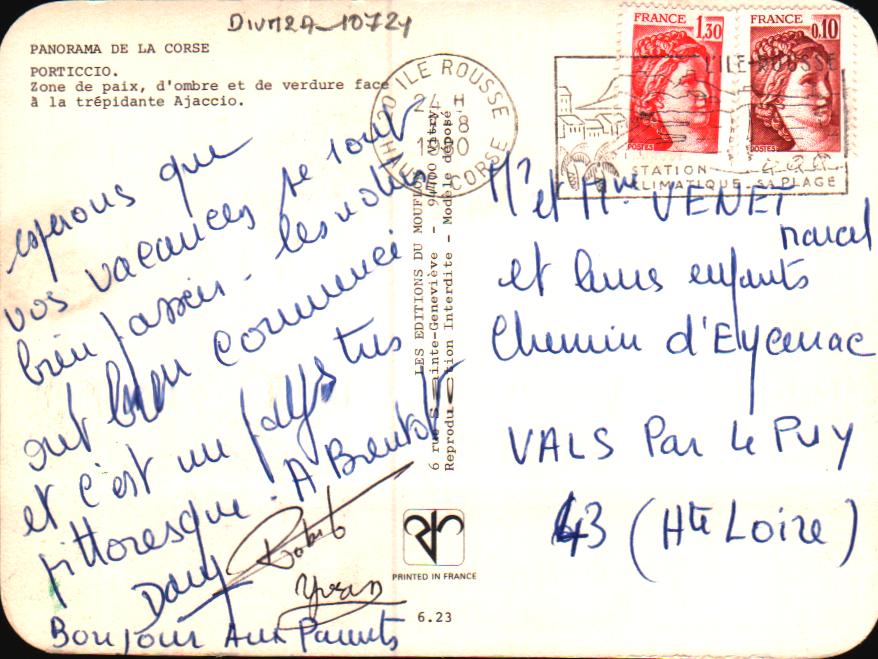 DIVM2A_10724
PANORAMA DE LA CORSE
PORTICCIO.
Zone de paix, d'ombre et de verdure face
à la trépidante Ajaccio.
esperons que
vos vacances se sont
bien passées. les notres
ont bien commencé
et c'est un pays très
pittoresque. A Bientot
Dany Robert
Yvan
Bonjour Aux Parents
LES EDITIONS DU MOUFLON
6 rue Sainte-Geneviève - 94400 Vitry
Reproduction Interdite - Modèle déposé
PRINTED IN FRANCE
6.23
ILE ROUSSE
24 H
8
1980
HAUTE CORSE
FRANCE 1,30
POSTES
FRANCE 0,10
POSTES
L'ILE-ROUSSE
STATION
CLIMATIQUE-SA PLAGE
Mr et Mme VENET
marcel
et leurs enfants
Chemin d'Eycenac
VALS Par Le PUY
43 (Hte Loire)